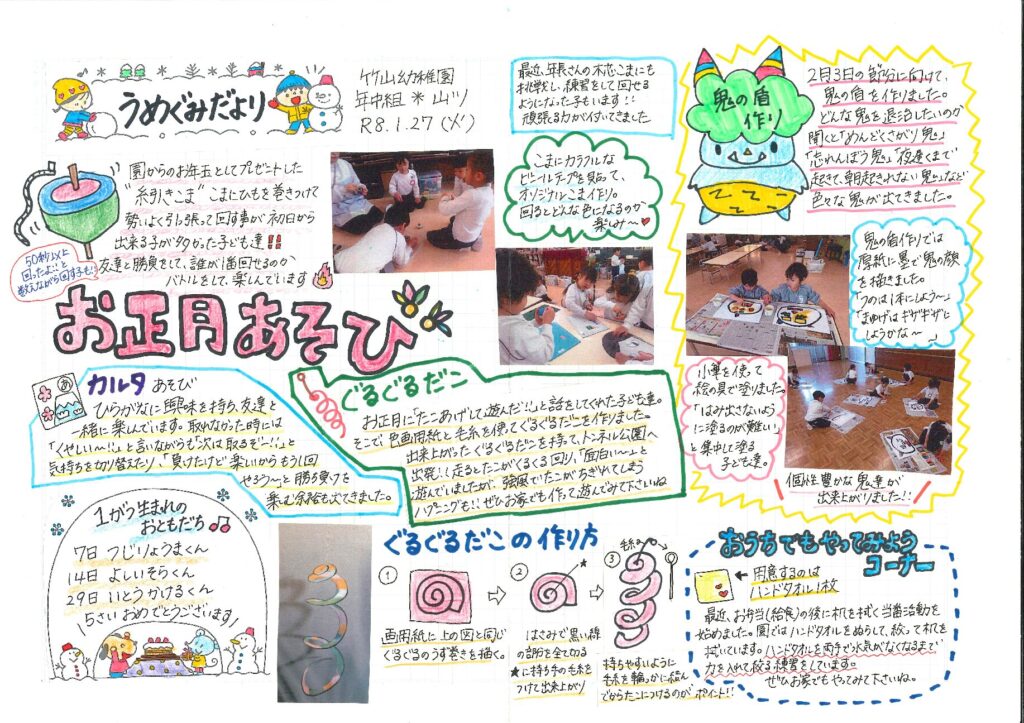 うめぐみだより
竹山幼稚園
年中組 * 山ツ
R8.1.27(火)
園からのお年玉としてプレゼントした
"糸引きこま" こまにひもを巻きつけて
勢いよく引っ張って回す事が初日から
出来る子が多かった子ども達!!
友達と勝負をして、誰が1番回せるのか
バトルをして、楽しんでいます
50秒以上
回ったよ!!と
数えながら回す子も!
最近、年長さんの木芯こまにも
挑戦し、練習をして回せる
ようになった子もいます!!
頑張る力が付いてきました
こまにカラフルな
ビニールテープを貼って、
オリジナルこま作り。
回るとどんな色になるのか
楽しみ〜♥
お正月あそび
カルタ あそび
あ
ひらがなに興味を持ち、友達と
一緒に楽しんでいます。取れなかった時には
「くやしい〜!!」と言いながらも"次は取るぞー!!"と
気持ちを切り替えたり、「負けたけど楽しいからもう1回
やろう〜」と勝ち負けを
楽しむ余裕も出てきました。
ぐるぐるだこ
お正月に「たこあげして遊んだ!!」と話をしてくれた子ども達。
そこで色画用紙と毛糸を使ってぐるぐるだこを作りました。
出来上がったぐるぐるだこを持って、トンネル公園へ
出発!!走るとたこがくるくる回り、「面白い〜」と
遊んでいましたが、強風でたこがちぎれてしまう
ハプニングも!!ぜひお家でも作って遊んでみて下さいね
鬼の盾
作り
2月3日の節分に向けて、
鬼の盾を作りました。
どんな鬼を退治したいのか
聞くと「めんどくさがり鬼」
「忘れんぼう鬼」「夜遅くまで
起きて、朝起きれない鬼」など
色々な鬼が出てきました。
鬼の盾作りでは
厚紙に墨で鬼の顔
を描きました。
「つのは1本にしよう〜」
「まゆげはギザギザに
しようかな〜
小筆を使って
絵の具で塗りました。
「はみ出さないよう
に塗るのが難しい」
と集中して塗る
子ども達。
個性豊かな鬼達が
出来上がりました!!
1がつ生まれの
おともだち
7日 つじりょうまくん
14日 よしいそらくん
29日 いとうかけるくん
5さいおめでとうございます
ぐるぐるだこの作り方
①
画用紙に上の図と同じ
ぐるぐるのうず巻きを描く。
②
はさみで黒い線
の部分を全て切る
★に持ち手の毛糸を
つけて出来上がり
③
毛糸
持ちやすいように
毛糸を輪っかに結ん
でからたこにつけるのがポイント!!
おうちでもやってみよう
コーナー
← 用意するのは
ハンドタオル1枚
最近、お弁当(給食)の後に机を拭く当番活動を
始めました。園ではハンドタオルをぬらして、絞って机を
拭いています。ハンドタオルを両手で水気がなくなるまで
力を入れて絞る練習をしています。
ぜひお家でもやってみて下さいね。